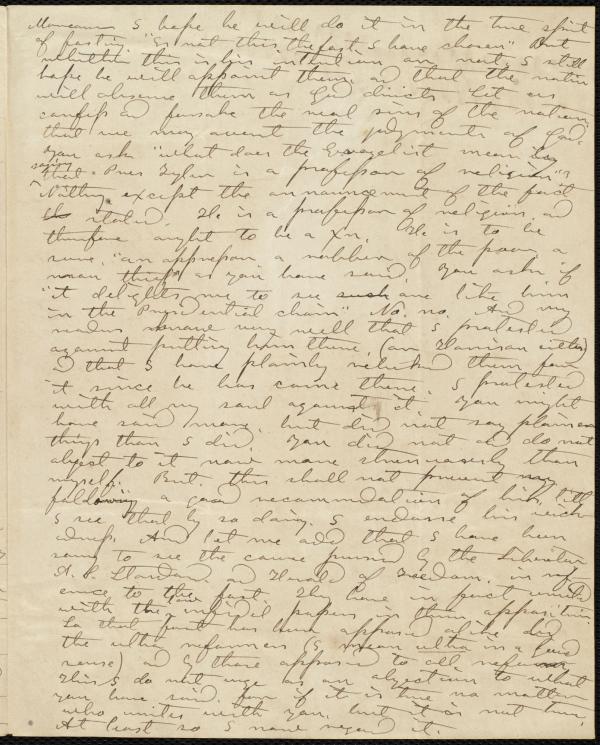 I hope he will do it in the true spirit
of fasting "Is not this the fast I have chosen" But
whether this is his intention or not, I still
hope he will appoint them, and that the nation
will observe them as God directs Let us
confess and forsake the real sins of the nation
that we may avert the judgments of God.
You ask "what does the Evangelist mean by
saying
that Pres Tyler is a professor of religion"?
Nothing except the announcement of the fact
stated. He is a professor of religion, and
therefore ought to be a Xn. He is to be
sure, "an oppressor, a robber of the poor, a
mean thief" as you have said. You ask if
"it delights me to see such one like him
in the Presidential chair" No. no. And my
readers know very well that I protested
against putting him there, (or Harrison either)
& that I have plainly rebuked them for
it since he has come there. I protested
with all my soul against it. You might
have said more, but did not say plainer
things than I did. You did not and do not
object to it now more strenuously than
myself. But this shall not prevent my
following a good recommendation of his, lest
I see that by so doing, I endorse his wick
edness. And let me add that I have been
sorry to see the course pursued by the Liberator
A. S. Standard, and Herald of Freedom, in refer
ence to the fast. They have in fact united
with the infidel papers in their opposition.
So that fast has been opposed alike by
the ultra reformers (I mean ultra in a good
sense) and by those opposed to all reform
This I do not urge as an objection to what
you have said, for if it is true no matter
who unites with you, but it is not true,
At least so I now regard it.